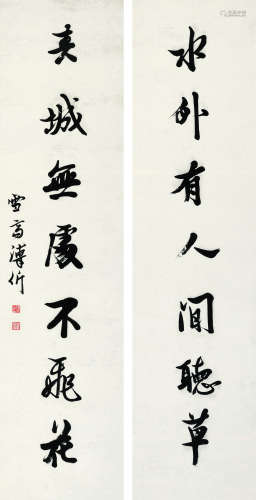 水外有人間聽草
春城無處不飛花
雪齋溥伒